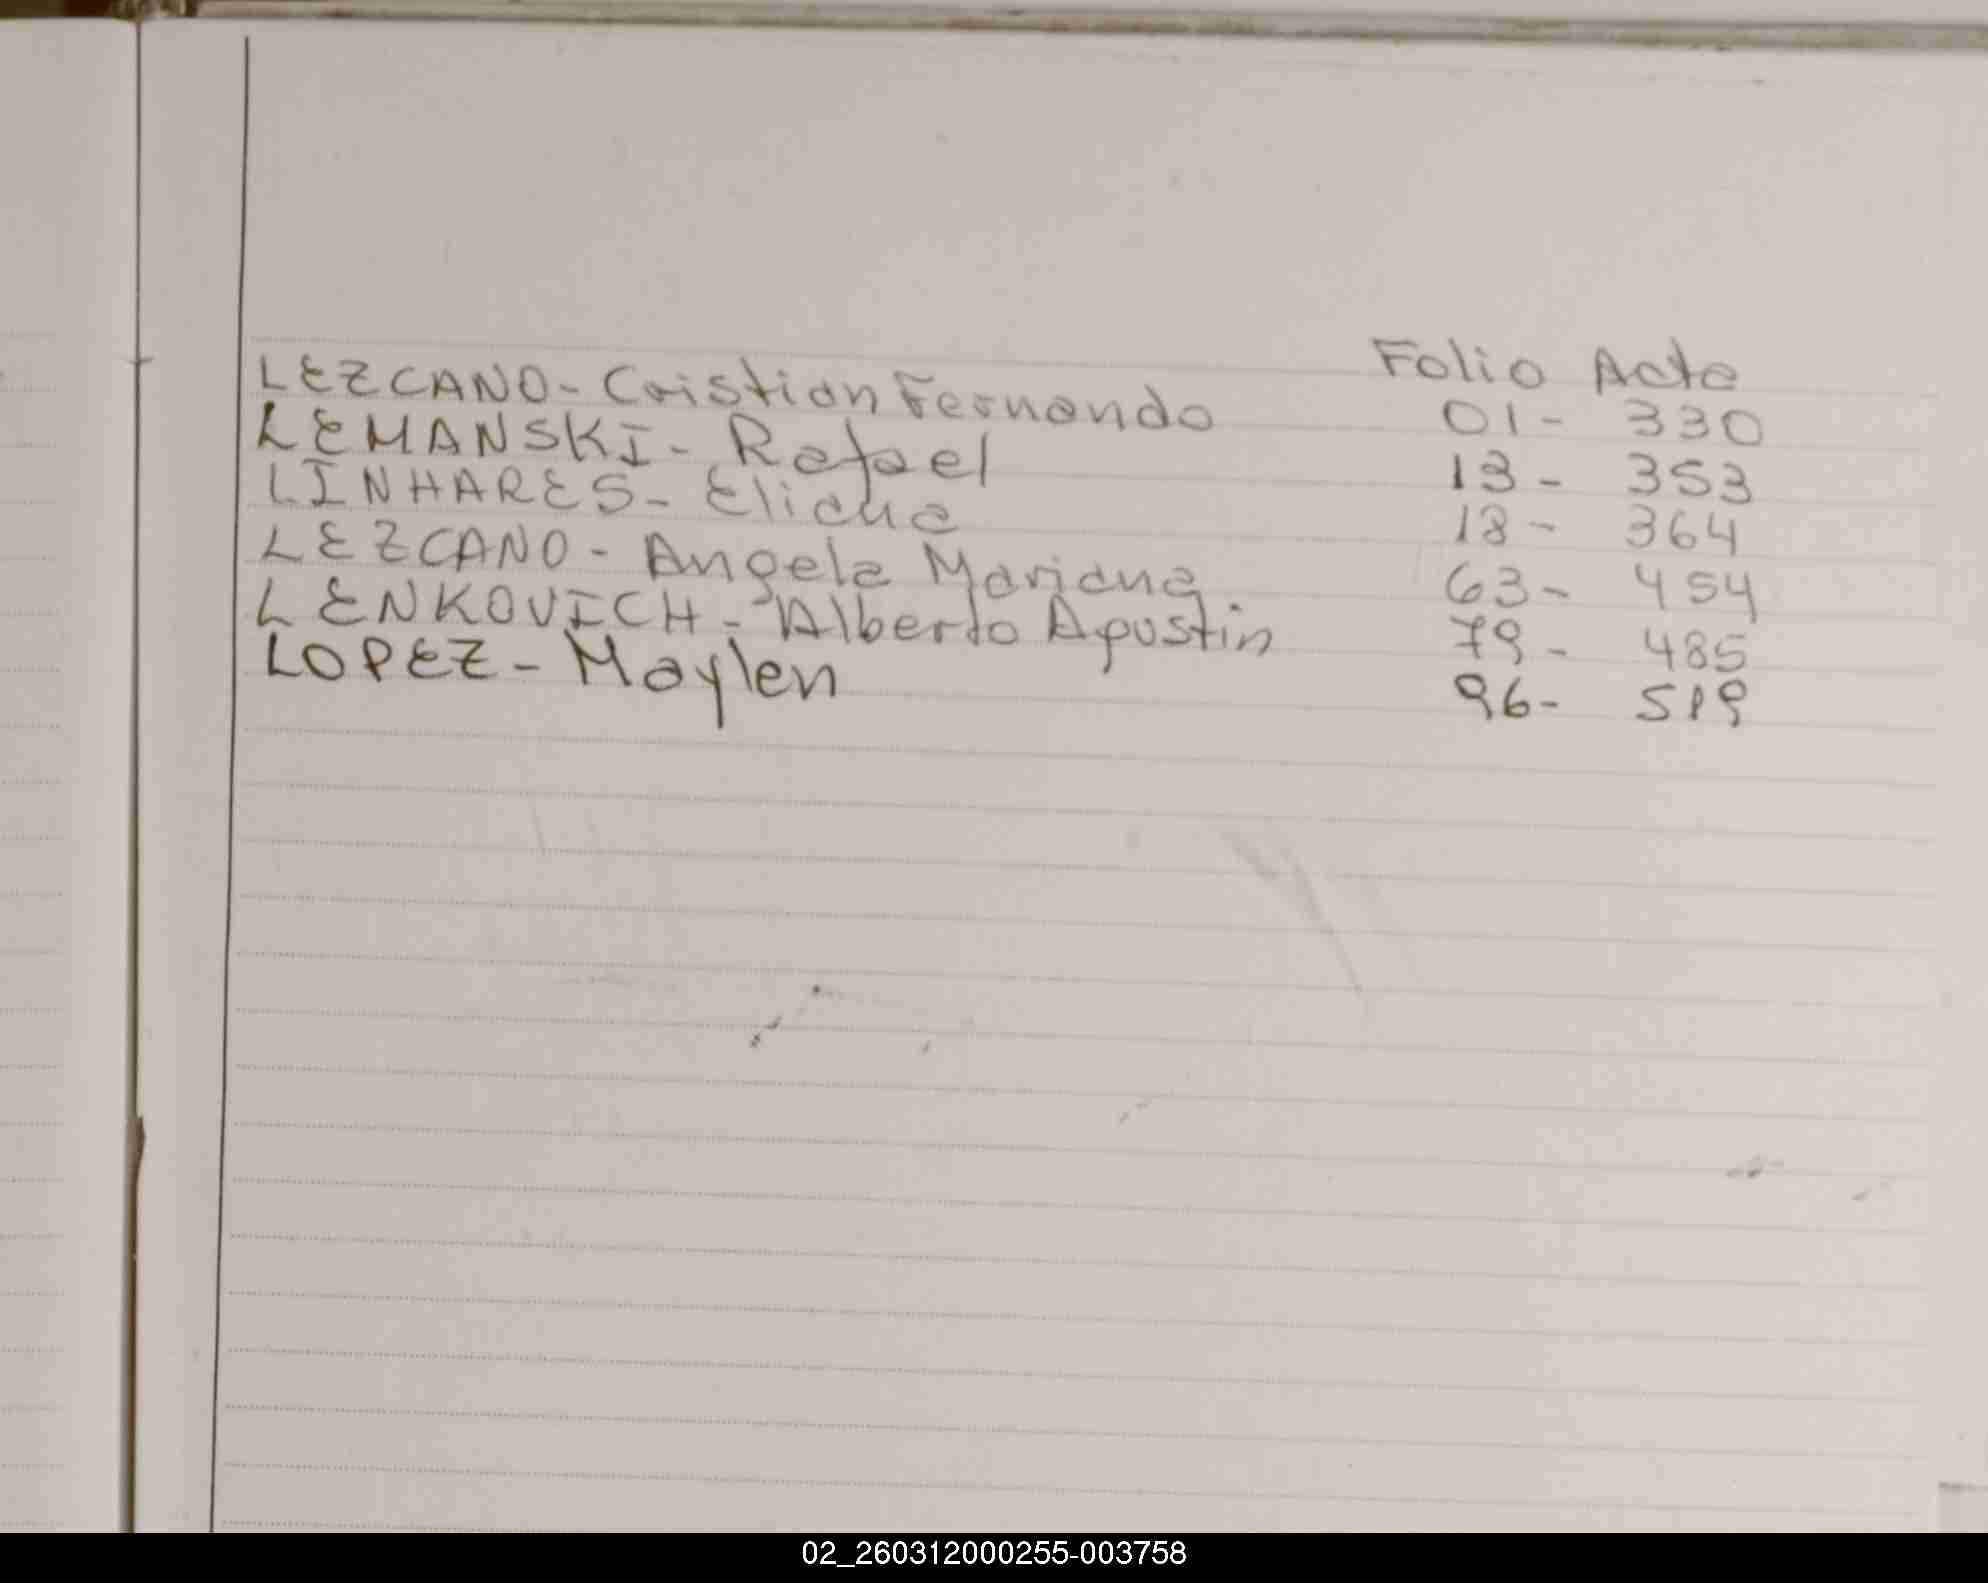 Folio Acta
LEZCANO - Cristian Fernando 01 - 330
LEMANSKI - Rafael 13 - 353
LINHARES - Eliana 18 - 364
LEZCANO - Angela Mariana 63 - 454
LENKOVICH - Alberto Agustin 79 - 485
LOPEZ - Maylen 96 - 519
02_260312000255-003758